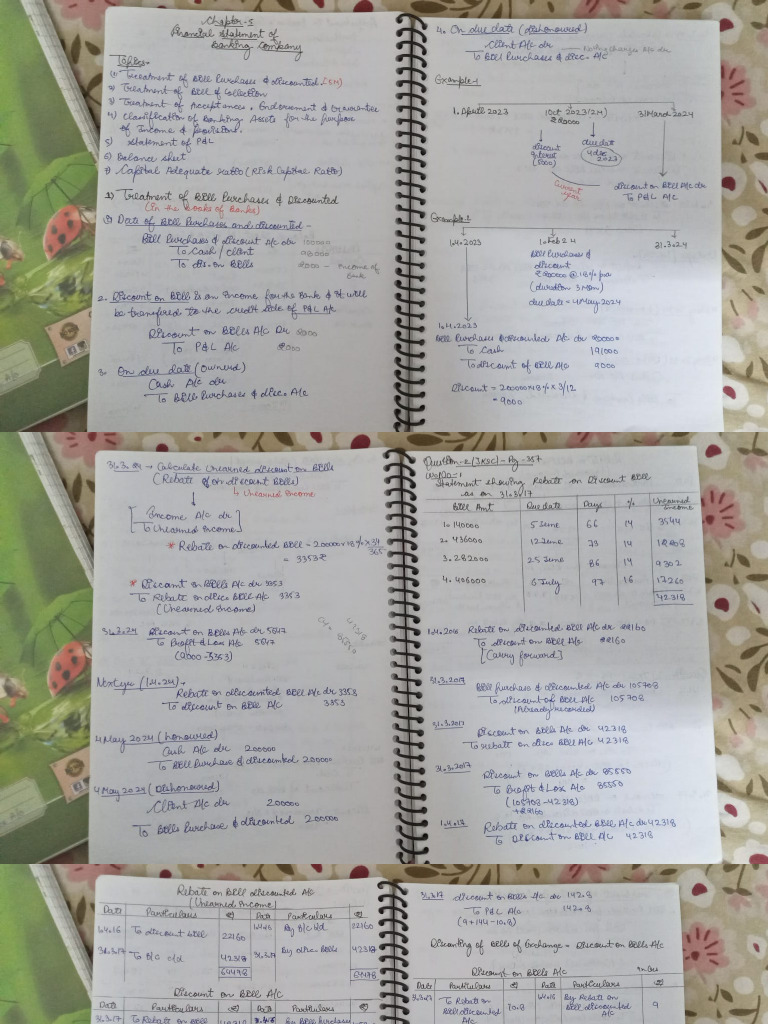 Chapter-5
Financial Statement of
Banking Company
Topics-
1) Treatment of Bill Purchases & discounted.
2) Treatment of Bill of Collection
3) Treatment of Acceptances, Endorsement & Guarantee
4) Classification of Banking Assets for the purpose
of Income & provisions.
5) Statement of P&L
6) Balance sheet
7) Capital Adequate ratio (Risk Capital Ratio)
1) Treatment of Bill Purchases & Discounted
(in the books of Banks)
Date of Bill Purchases and discounted-
Bill Purchases & discount A/c dr 100000
To Cash / Client 98000
To dis. on Bills 2000 - Income of Bank
2. Discount on Bill is an Income for the Bank & it will
be transfered to the credit side of P&L A/c
Discount on Bills A/c Dr 2000
To P&L A/c 2000
3. On due date (ownered)
Cash A/c dr
To Bill Purchases & disc. A/c
4. On due date (dishonoured)
Client A/c dr
To Bill Purchases & disc. A/c
Example-1
1. April 2023
1 Oct 2023 (2M)
31 March 2024
discount
interest
due date
4 dec
2023
Current
year
discount on Bill A/c dr
To P&L A/c
Example-2
1.4.2023
1 Feb 24
31.3.24
Bill Purchases &
discount
@ 18% pa
(duration 3 Mon)
due date = 4 May 2024
Bill Purchases & discounted A/c dr 200000
To Cash 191000
To discount of Bill A/c 9000
Discount = 200000x18%x3/12
= 9000
31.3.24 → Calculate Unearned discount on Bills
(Rebate of on discount Bills)
↳ Unearned Income
[Income A/c dr
To Unearned Income]
* Rebate on discounted Bill = 200000x18%x34/365
= 3353₹
* Discount on Bills A/c dr 3353
To Rebate on disc. Bill A/c 3353
(Unearned Income)
31.3.24 Discount on Bills A/c dr 5647
To Profit & Loss A/c 5647
(9000-3353)
Next year (1.4.24)→
Rebate on discounted Bill A/c dr 3353
To discount on Bill A/c 3353
4 May 2024 (honoured)
Cash A/c dr 200000
To Bill Purchase & discounted 200000
4 May 2024 (Dishonoured)
Client A/c dr 200000
To Bills Purchase & discounted 200000
Statement showing Rebate on Discount Bill
as on 31.3.17
Bill Amt Due date Days % Unearned Income
1. 140000 5 June 66 14 3544
2. 436000 12 June 73 14
3. 282000 25 June 86 14 9302
4. 406000 6 July 97 16 17260
42318
Rebate on discounted Bill A/c dr 22160
To discount on Bill A/c 22160
[Carry forward]
31.3.2017
Bill purchase & discounted A/c dr 105708
To discount of Bill A/c 105708
(Already recorded)
31.3.2017
Discount on Bills A/c dr 42318
To rebate on disc. Bill A/c 42318
31.3.2017
Discount on Bills A/c dr 85550
To Profit & Loss A/c 85550
(105708-42318)
+22160
1.4.17
Rebate on discounted Bill A/c dr 42318
To Discount on Bill A/c 42318
Rebate on Bill discounted A/c
(Unearned Income)
Date Particulars (₹) Date Particulars (₹)
To discount bill 22160 By B/c b/d 22160
31.3.17 To B/c c/d 42318 31.3.17 By disc. Bills 42318
Discount on Bill A/c
Date Particulars (₹) Date Particulars (₹)
31.3.17 To Rebate on
31.3.17 discount on Bills A/c dr 142.8
To P&L A/c 142.8
(9+144-10.8)
Discounting of Bills of Exchange = Discount on Bills A/c
Discount on Bills A/c
Date Particulars (₹) Date Particulars (₹)
To Rebate on
Bill discounted
A/c 10.8
By Rebate on
Bill discounted
A/c 9